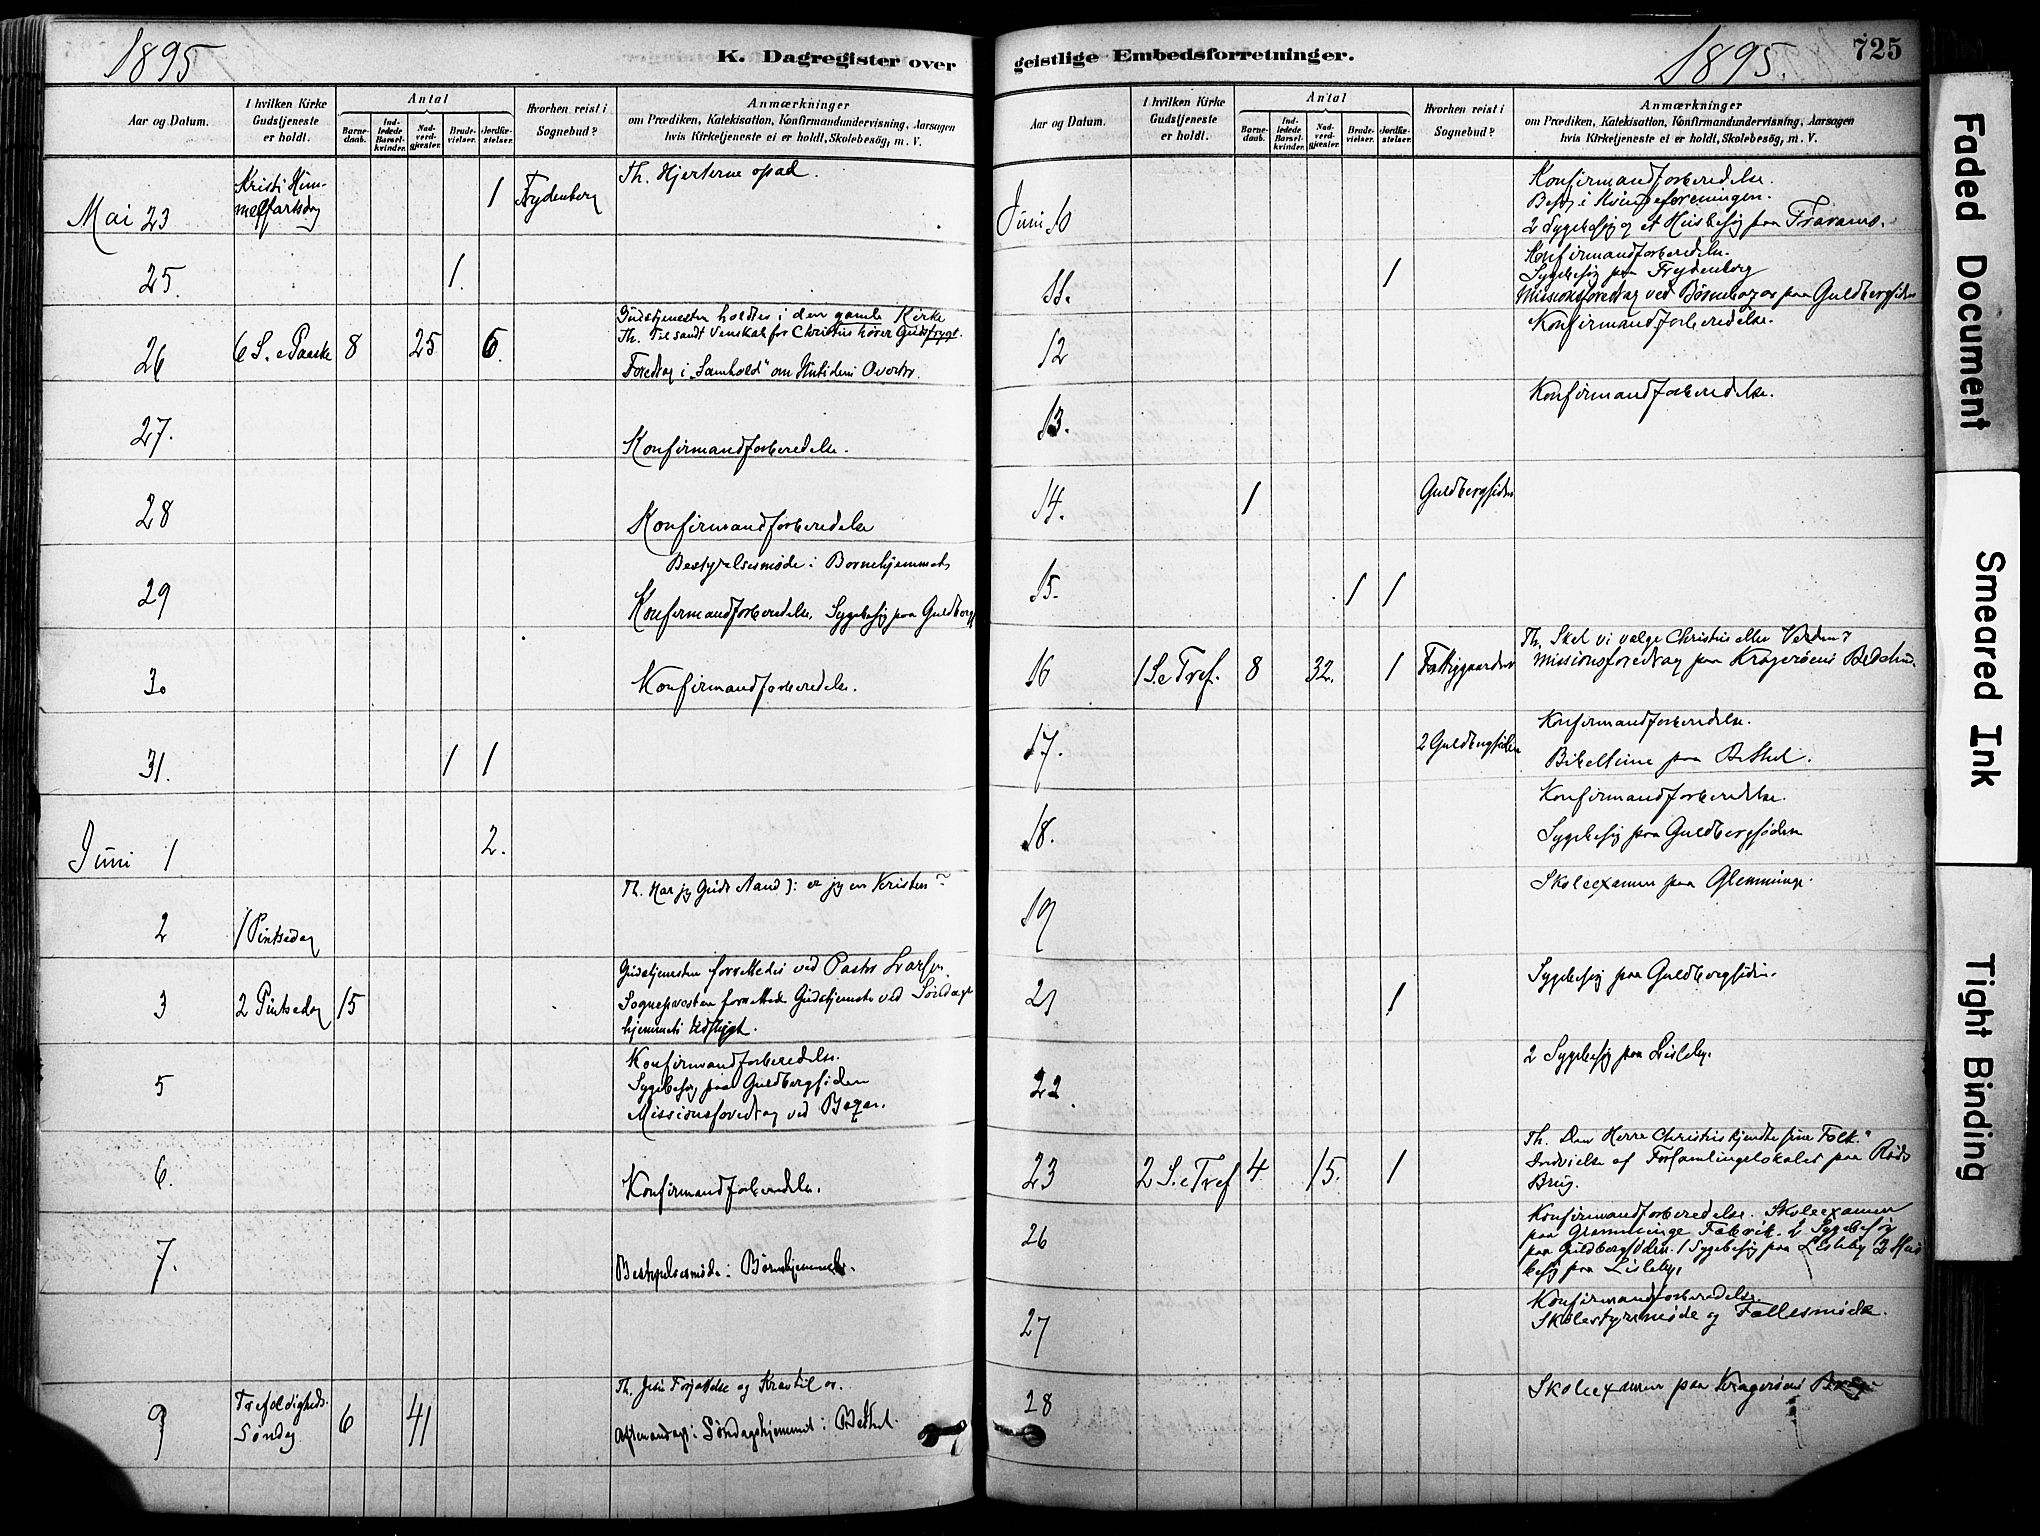 1895
K. Dagregister over
Aar og Datum.
I hvilken Kirke Gudstjeneste er holdt.
Antal
Barnedaab.
Indledede Barselkvinder.
Nadverdgjester.
Brudevielser.
Jordfæstelser.
Hvorhen reist i Sognebud?
Anmærkninger
om Prædiken, Katekisation, Konfirmandundervisning, Aarsagen
hvis Kirketjeneste ei er holdt, Skolebesøg, m. V.
Mai 23 Kristi Himmelfartsdag 1 Frydenberg Th. Hjerterne opad.
25. 1.
26 6 S. e Paaske 8 25 6. Gudstjenesten holdtes i den gamle Kirke
Th. Til sandt Venskab for Christus hører Gudsfrygt.
Foredrag i "Samhold" om
27. Konfirmandforberedelse.
28 Konfirmandforberedelse
Bestyrelsesmøde i Børnehjemmet
29 Konfirmandforberedelse, Sygebesøg paa Guldberg
30 Konfirmandforberedelse.
31. 1 1
Juni 1 2.
2 1 Pintsedag Th. Har jeg Guds Aand ): er jeg en Kristen?
3 2 Pintsedag 15 Gudstjenesten forrettedes ved Pastor Larsen.
Sognepresten forrettede Gudstjeneste ved Søndags
hjemmets Udflugt.
5 Konfirmandforberedelse.
Sygebesøg paa Guldbergsiden
Missionsforedrag ved Bazar.
6. Konfirmandforberedelse.
7. Bestyrelsesmøde i Børnehjemmet.
9 Trefoldigheds Søndag 6 41 Th. Jesu og
i Søndagshjemmet i Bethel.
geistlige Embedsforretninger.
1895.
725
Aar og Datum.
I hvilken Kirke Gudstjeneste er holdt.
Antal
Barnedaab.
Indledede Barselkvinder.
Nadverdgjester.
Brudevielser.
Jordfæstelser.
Hvorhen reist i Sognebud?
Anmærkninger
om Prædiken, Katekisation, Konfirmandundervisning, Aarsagen
hvis Kirketjeneste ei er holdt, Skolebesøg, m. V.
Juni 10 Konfirmandforberedelse.
Besøg i Kvindeforeningen.
2 Sygebesøg og et Husbesøg paa Traranes.
11. 1 Konfirmandforberedelse.
Sygebesøg paa Frydenberg
Missionsforedrag ved Børnebazar paa Guldbergsiden
12 Konfirmandforberedelse.
13. Konfirmandforberedelse.
14. 1 Guldbergsiden
15. 1 1
16 1 S. e Tref. 8 32. 1 Fattiggaarden Th. Skal vi vælge Christus eller Verden?
Missionsforedrag paa Kragerøens Bedehus.
17. 2 Guldbergsiden Konfirmandforberedelse.
Bibeltime paa Bethel.
18. Konfirmandforberedelse.
Sygebesøg paa Guldbergsiden
19 Skoleexamen paa Glemminge.
21 1 Sygebesøg paa Guldbergsiden.
22. 2 Sygebesøg paa Lisleby.
23 2 S. e Tref 4 15. 1 Th. Den Herre Christus kjendte sine Folk."
Indvielse af Forsamlingslokalet paa Røds
Brug.
26 Konfirmandforberedelse. Skoleexamen
paa Glemminge Fabrik. 2 Sygebesøg
paa Guldbergsiden. 1 Sygebesøg paa Lisleby 2 Hus
besøg paa Lisleby.
27 Konfirmandforberedelse.
Skolestyremøde og Fællesmøde.
28 Skoleexamen paa Kragerøens Brug.
Faded Document
Smeared Ink
Tight Binding